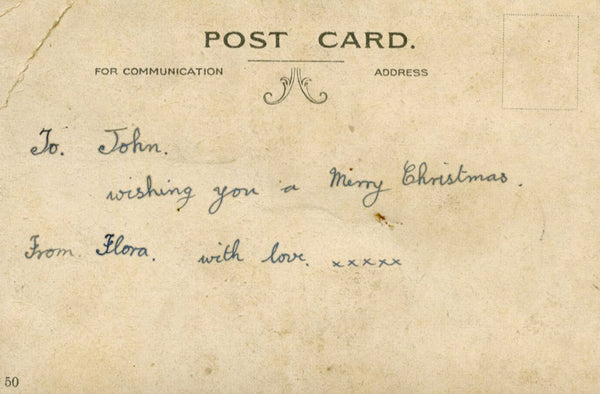 POST CARD.
FOR COMMUNICATION ADDRESS
To. John.
wishing you a Merry Christmas.
From. Flora. with love. xxxxx
50